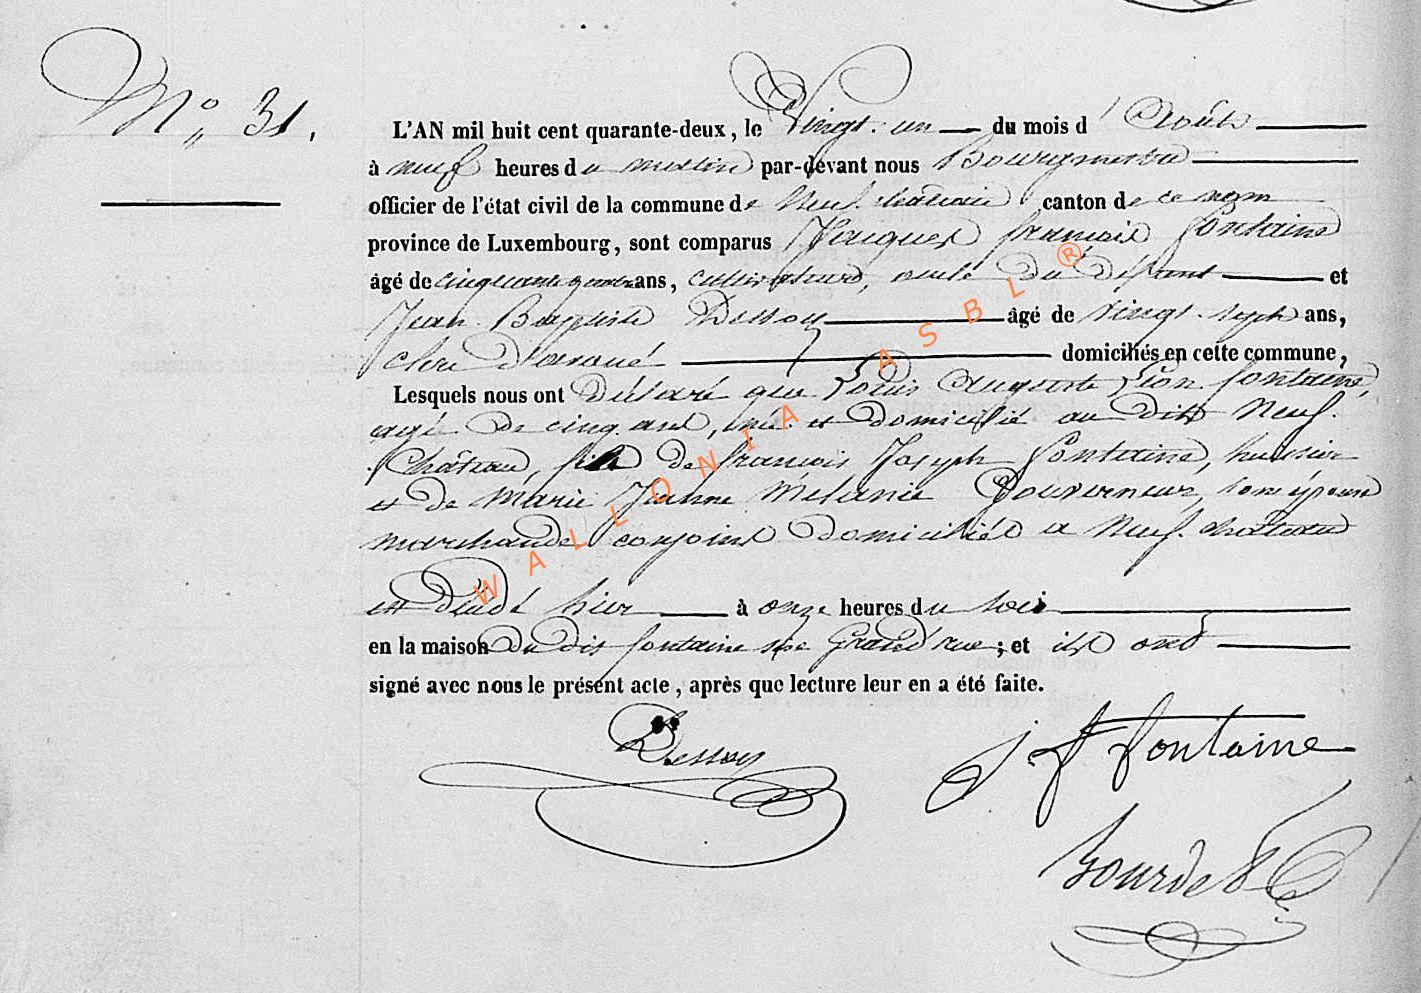 N° 31.
L'AN mil huit cent quarante-deux, le Vingt-un du mois d'Août
à neuf heures du matin par-devant nous Bourgmestre
officier de l'état civil de la commune de Neufchateau canton de ce nom
province de Luxembourg, sont comparus Jacques françois fontaine
âgé de cinquante quatre ans, cultivateur, oncle du défunt et
Jean Baptiste Dessoy âgé de vingt-sept ans,
clerc d'avoué domiciliés en cette commune,
Lesquels nous ont déclaré que Louis Auguste Léon fontaine,
agé de cinq ans, né et domicilié au dit Neuf-
Château, fils de françois Joseph fontaine, huissier
et de Marie Jeanne Mélanie Gouverneur, son épouse
marchande conjoins domiciliés à Neuf-château
est décédé hier à onze heures du soir
en la maison du dit fontaine Grand'rue; et ils ont
signé avec nous le présent acte, après que lecture leur en a été faite.
Dessoy
J f fontaine
WALLONIA ASBL ®